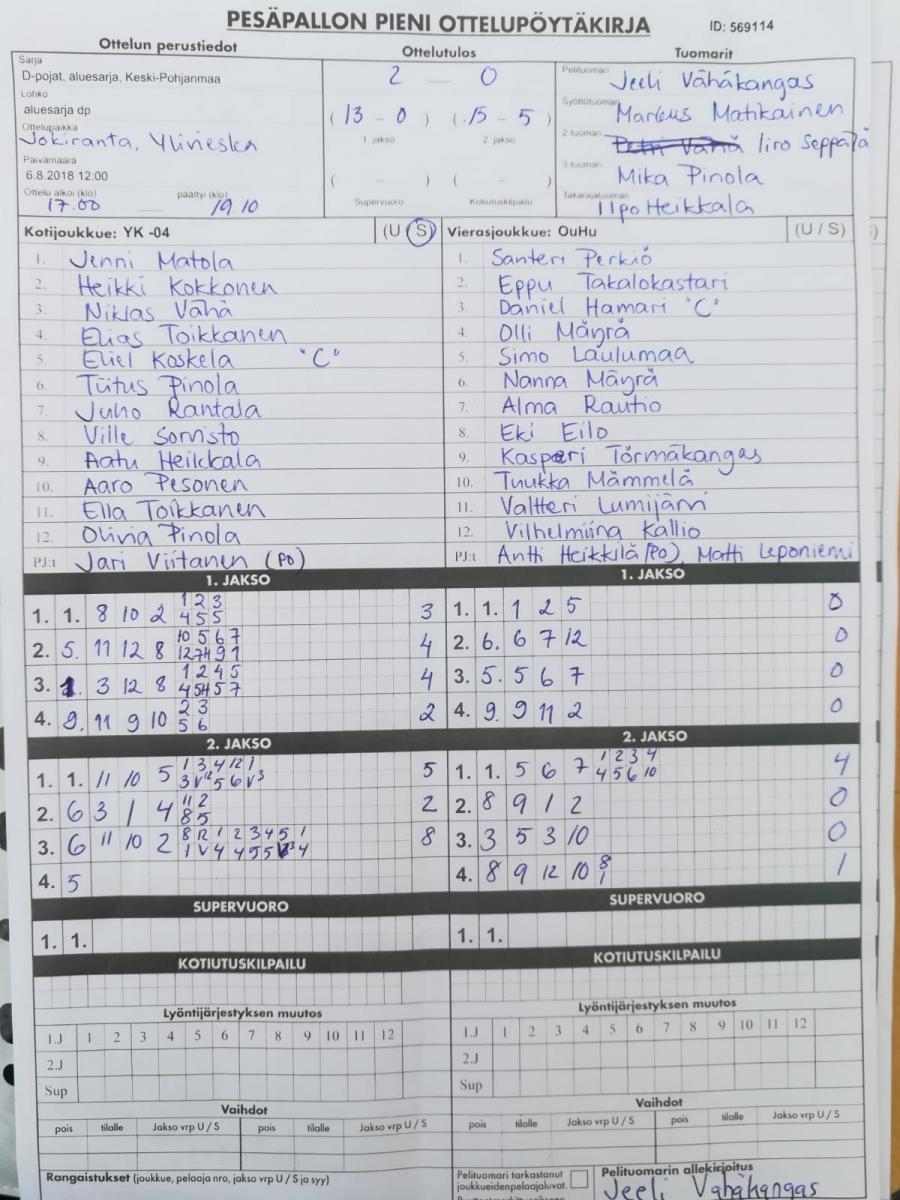 PESÄPALLON PIENI OTTELUPÖYTÄKIRJA ID: 569114
Ottelun perustiedot Ottelutulos Tuomarit
Sarja
D-pojat, aluesarja, Keski-Pohjanmaa
Lohko
aluesarja dp
Ottelupaikka
Jokiranta, Ylivieska
Päivämäärä
6.8.2018 12:00
Ottelu alkoi (klo) päättyi (klo)
17.00 19.10
2 - 0
( 13 - 0 ) ( 15 - 5 )
1 jakso 2. jakso
( - ) ( - )
Supervuoro Kotiutuskilpailu
Pelituomari Jeeli Vähäkangas
Syöttötuomari Markus Matikainen
2-tuomari Iiro Seppälä
3-tuomari Mika Pinola
Takarajatuomari Ilpo Heikkala
Kotijoukkue: YK -04 (U S)
1. Jenni Matola
2. Heikki Kokkonen
3. Niklas Vähä
4. Elias Toikkanen
5. Eliel Koskela "C"
6. Tiitus Pinola
7. Juho Rantala
8. Ville Sorvisto
9. Aatu Heikkala
10. Aaro Pesonen
11. Ella Toikkanen
12. Olivia Pinola
PJ:t Jari Viitanen (PO)
Vierasjoukkue: OuHu (U / S)
1. Santeri Perkiö
2. Eppu Takalokastari
3. Daniel Hamari "C"
4. Olli Mäyrä
5. Simo Laulumaa
6. Nanna Mäyrä
7. Alma Rautio
8. Eki Eilo
9. Kasperi Törmäkangas
10. Tuukka Mämmelä
11. Valtteri Lumijärvi
12. Vilhelmiina Kallio
PJ:t Antti Heikkilä (PO), Matti Leponiemi
1. JAKSO
1. 1. 8 10 2 1 2 3 3
4 5 5
2. 5. 11 12 8 10 5 6 7 4
3. 1. 3 12 8 1 2 4 5 4
4. 9. 11 9 10 2 3 2
5 6
1. JAKSO
1. 1. 1 2 5 0
2. 6. 6 7 12 0
3. 5. 5 6 7 0
4. 9. 9 11 2 0
2. JAKSO
1. 1. 11 10 5 1 3 4 12 1 5
2. 6 3 1 4 11 2 2
8 5
3. 6 11 10 2 8 12 1 2 3 4 5 1 8
4. 5
2. JAKSO
1. 1. 5 6 7 1 2 3 4 4
4 5 6 10
2. 8 9 1 2 0
3. 3 5 3 10 0
4. 8 9 12 10 8 1
1
SUPERVUORO SUPERVUORO
1. 1. 1. 1.
KOTIUTUSKILPAILU KOTIUTUSKILPAILU
Lyöntijärjestyksen muutos Lyöntijärjestyksen muutos
1.J 1 2 3 4 5 6 7 8 9 10 11 12 1.J 1 2 3 4 5 6 7 8 9 10 11 12
2.J 2.J
Sup Sup
Vaihdot Vaihdot
pois tilalle Jakso vrp U / S pois tilalle Jakso vrp U / S pois tilalle Jakso vrp U / S pois tilalle Jakso vrp U / S
Rangaistukset (joukkue, pelaaja nro, jakso vrp U / S ja syy)
Pelituomari tarkastanut
joukkueidenpelaajaluvat.
Pelituomarin allekirjoitus
Jeeli Vähäkangas